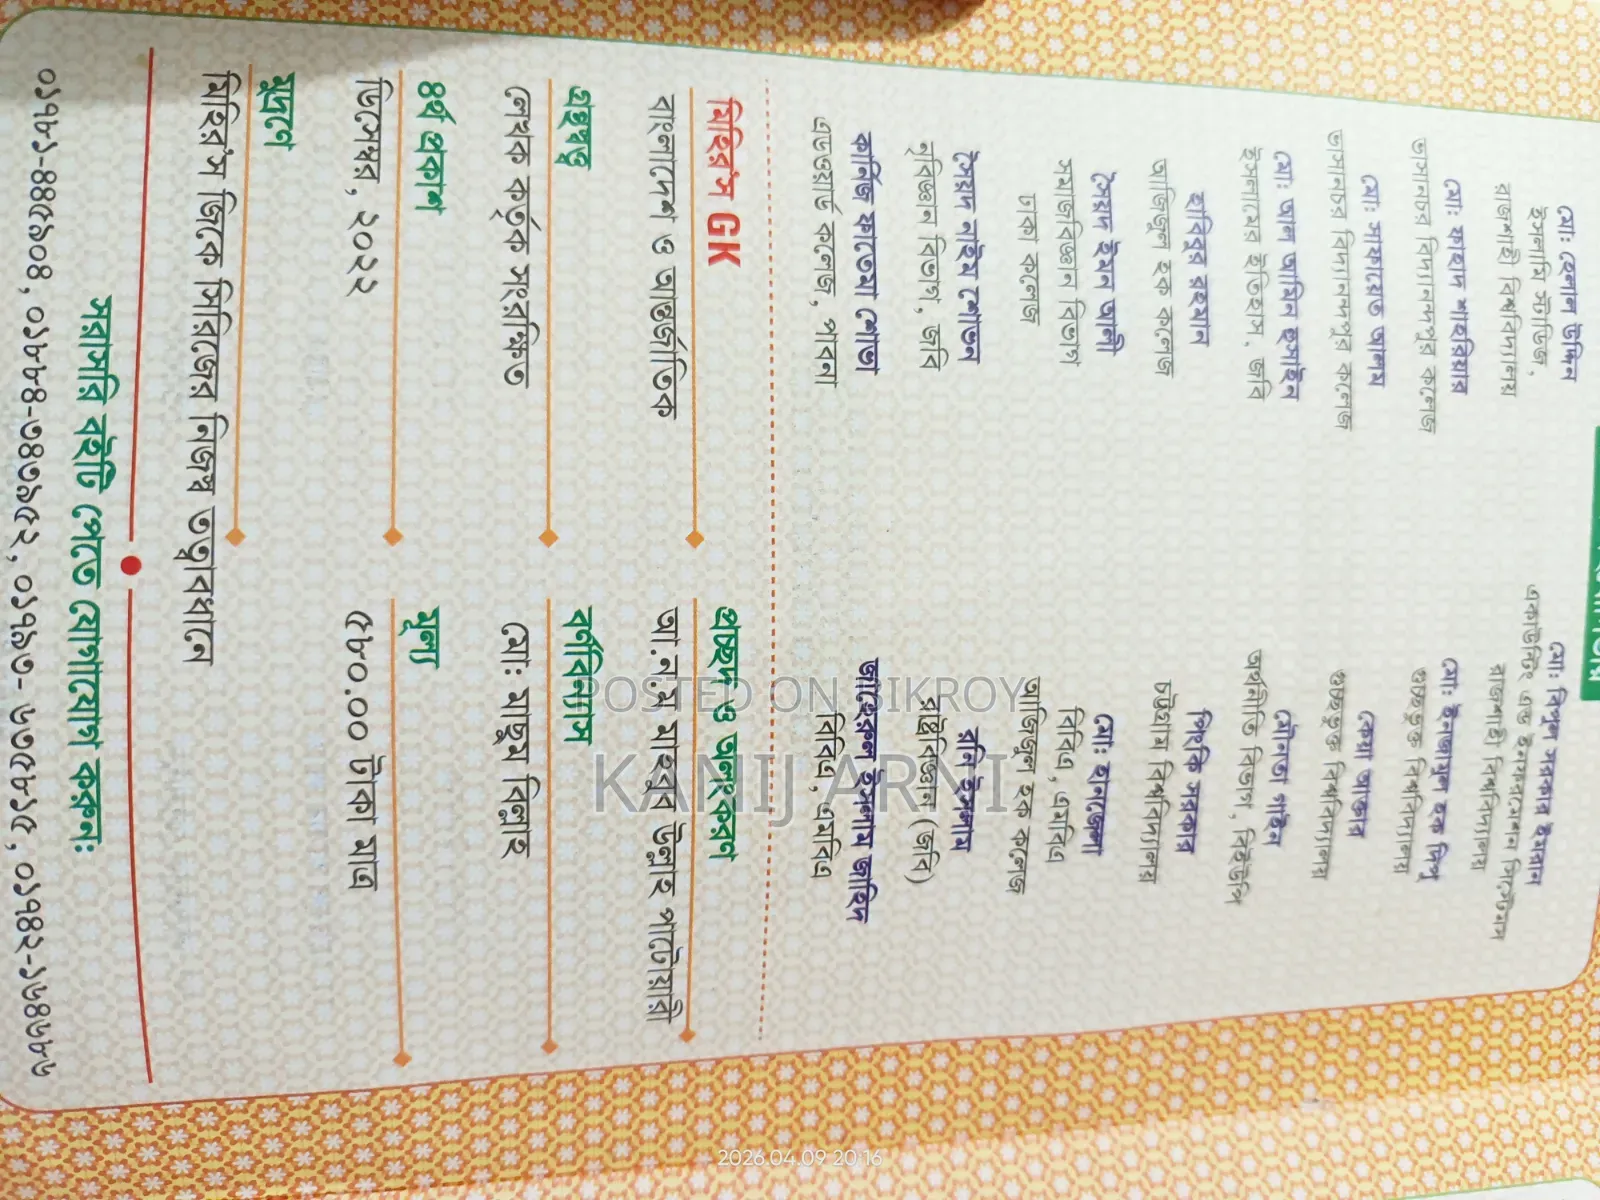 মো: হেলাল উদ্দিন
ইসলামি স্টাডিজ,
রাজশাহী বিশ্ববিদ্যালয়
মো: ফাহাদ শাহরিয়ার
ভাসানচর বিদ্যানন্দপুর কলেজ
মো: সাফায়েত আলম
ভাসানচর বিদ্যানন্দপুর কলেজ
মো: আল আমিন হুসাইন
ইসলামের ইতিহাস, জবি
হাবিবুর রহমান
আজিজুল হক কলেজ
সৈয়দ ইমন আলী
সমাজবিজ্ঞান বিভাগ
ঢাকা কলেজ
সৈয়দ নাইম শোভন
নৃবিজ্ঞান বিভাগ, জবি
কানিজ ফাতেমা শোভা
এডওয়ার্ড কলেজ, পাবনা
মো: বিপুল সরকার ইমরান
একাউন্টিং এন্ড ইনফরমেশন সিস্টেমস
রাজশাহী বিশ্ববিদ্যালয়
মো: ইনজামুল হক দিপু
গুচ্ছভুক্ত বিশ্ববিদ্যালয়
কেয়া আক্তার
গুচ্ছভুক্ত বিশ্ববিদ্যালয়
মৌনতা শাইন
অর্থনীতি বিভাগ, বিইউপি
পিংকি সরকার
চট্টগ্রাম বিশ্ববিদ্যালয়
মো: হানজেলা
বিবিএ, এমবিএ
আজিজুল হক কলেজ
রনি ইসলাম
রাষ্ট্রবিজ্ঞান (জবি)
জাহেরুল ইসলাম জাহিদ
বিবিএ, এমবিএ
মিহির'স GK
বাংলাদেশ ও আন্তর্জাতিক
প্রচ্ছদ ও অলংকরণ
আ.ন.ম মাহবুব উল্লাহ পাটোয়ারী
গ্রন্থস্বত্ব
লেখক কর্তৃক সংরক্ষিত
বর্ণবিন্যাস
মো: মাছুম বিল্লাহ
৪র্থ প্রকাশ
ডিসেম্বর, ২০২২
মূল্য
৫৮০.০০ টাকা মাত্র
মুদ্রণে
মিহির'স জিকে সিরিজের নিজস্ব তত্ত্বাবধানে
সরাসরি বইটি পেতে যোগাযোগ করুন:
০১৭৮১-৪৪৫৯০৪, ০১৮৮৪-৭৪৩৯৫২, ০১৭৯৩-৬৩৫৮১৫, ০১৭৪২-১৬৪৬৮৬
POSTED ON BIKROY
KANIJ ARNI
2026.04.09 20:16